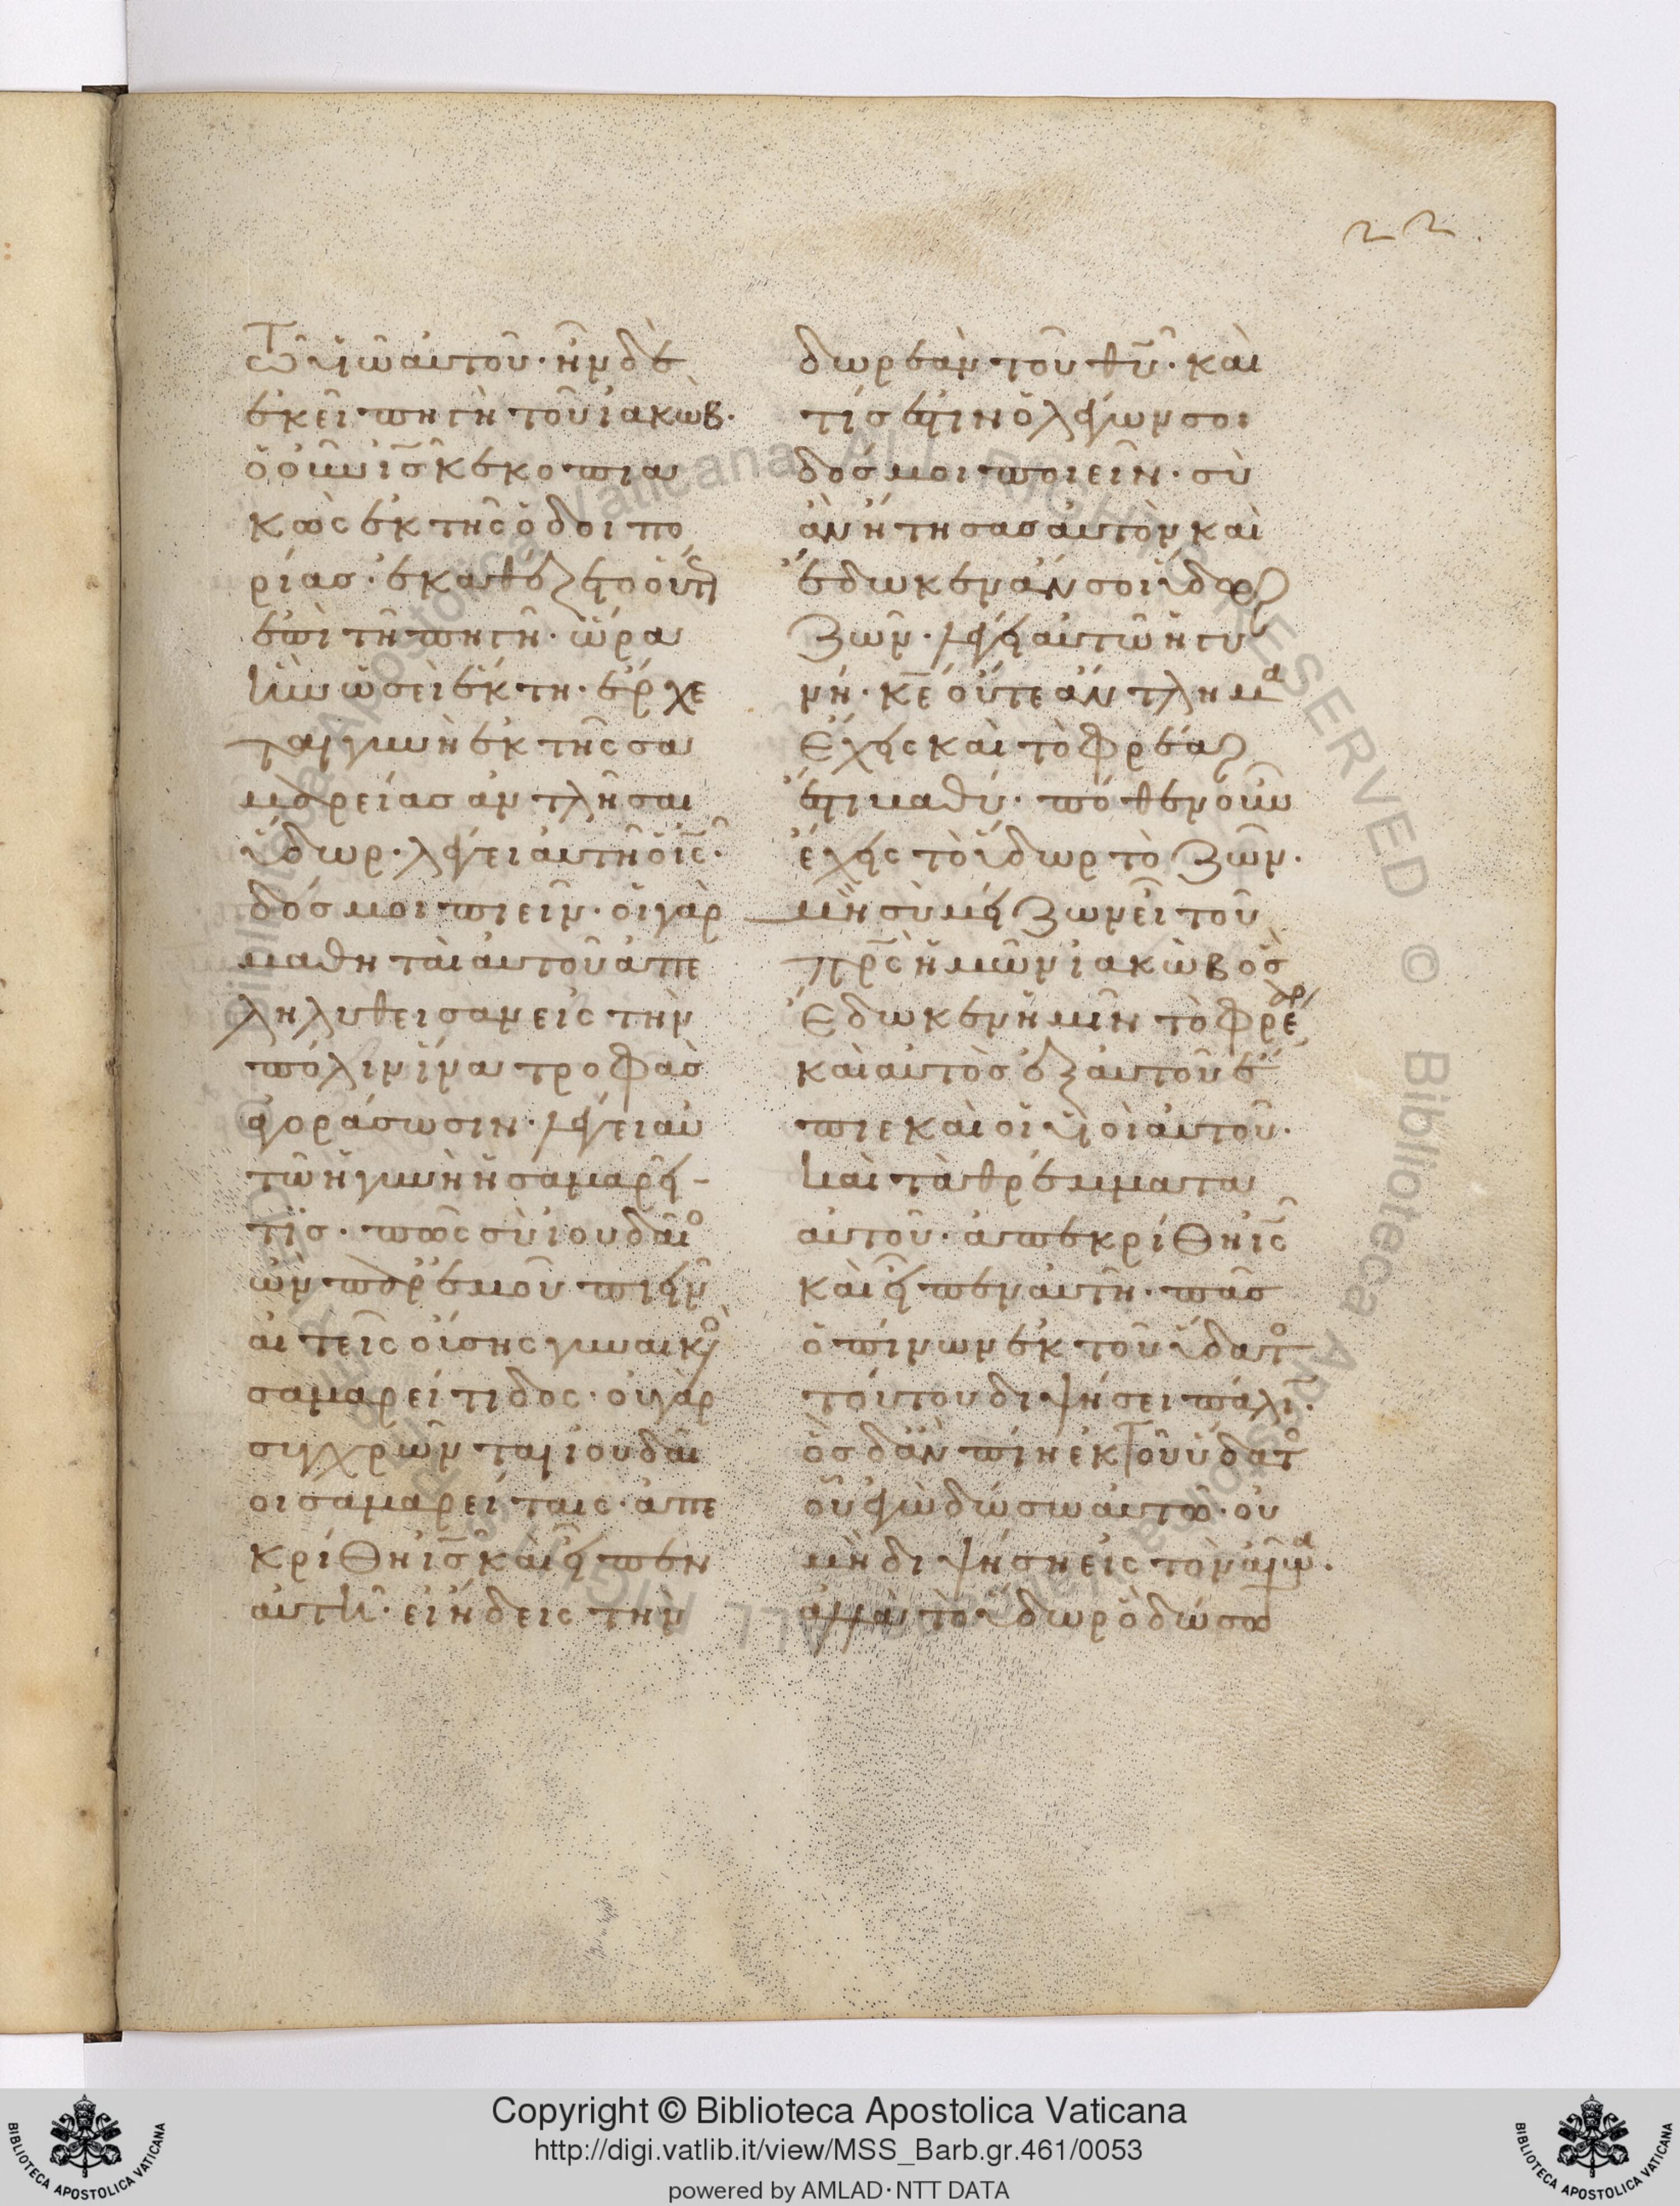 22
τῶ ϋἱῶ αὐτοῦ· ἦν δὲ
ἐκεῖ πηγὴ τοῦ ἰακώβ·
ὁ οὖν ἰ̅ς̅ κεκοπια
κὼς ἐκ τῆς ὁδοιπο
ρίας· ἐκαθέζετο οὕτ
ἐπὶ τῆ πηγῆ· ὥρα
ἦν ὡσεὶ ἕκτη· ἔρχε
ται γυνὴ ἐκ τῆς σα
μαρείας ἀντλῆσαι
ὕδωρ· λέγει αὐτῆ ὁ ἰ̅ς̅·
δός μοι πιεῖν· οἱ γὰρ
μαθηταὶ αὐτοῦ ἀπε
ληλύθεισαν εἰς τὴν
πόλιν ἵνα τροφὰς
ἀγοράσωσιν· λέγει αὐ
τῶ ἡ γυνὴ ἡ σαμαρεῖ-
τις· πῶς σὺ ἰουδαῖο
ὢν παρ' ἐμοῦ πιεῖν
αἰτεῖς οὔσης γυναικὸ
σαμαρείτιδος· οὐ γὰρ
συγχρῶνται ἰουδαῖ
οι σαμαρείταις· ἀπε
κρίθη ἰ̅ς̅ καὶ εἶπεν
αὐτῆ· εἰ ἤδεις τὴν
δωρεὰν τοῦ θ̅υ̅· καὶ
τίς ἐστιν ὁ λέγων σοι
δός μοι ποιεῖν· σὺ
ἂν ἤτησας αὐτὸν καὶ
ἔδωκεν ἄν σοι ὕδωρ
ζῶν· λέγει αὐτῶ ἡ γυ
νή· κ̅ε̅ οὔτε ἄντλημα
ἔχεις καὶ τὸ φρέαρ
ἐστὶ βαθύ· πόθεν οὖν
ἔχεις τὸ ὕδωρ τὸ ζῶν·
μὴ σὺ μείζων εἶ τοῦ
π̅ρ̅ς̅ ἡμῶν ἰακὼβ ὃς
ἔδωκεν ἡμῖν τὸ φρέαρ
καὶ αὐτὸς ἐξ αὐτοῦ ἔ
πιε καὶ οἱ ϋἱοὶ αὐτοῦ·
καὶ τὰ θρέμματα
αὐτοῦ· ἀπεκρίθη ἰ̅ς̅
καὶ εἶπεν αὐτῆ· πᾶς
ὁ πίνων ἐκ τοῦ ὕδατο
τούτου διψήσει πάλι̅·
ὃς δ' ἂν πίη ἐκ τοῦ ὕδατο
οὗ ἐγὼ δώσω αὐτῶ· οὐ
μὴ διψήση εἰς τὸν αἰῶνα·
ἀλλὰ τὸ ὕδωρ ὃ δώσω
Copyright © Biblioteca Apostolica Vaticana
http://digi.vatlib.it/view/MSS_Barb.gr.461/0053
powered by AMLAD·NTT DATA